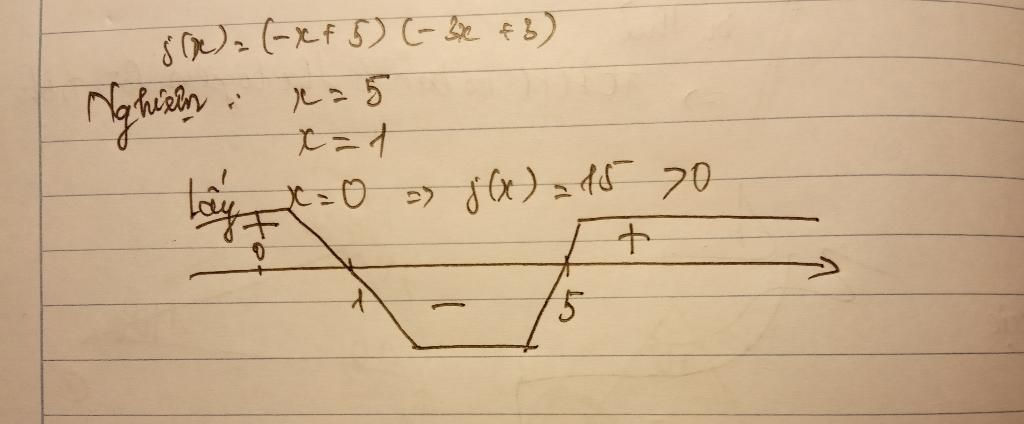 j(x) = (-x + 5) (-3x + 3)
Nghiệm : x = 5
x = 1
Lấy x = 0 => j(x) = 15 > 0
+ +
0
1 - 5